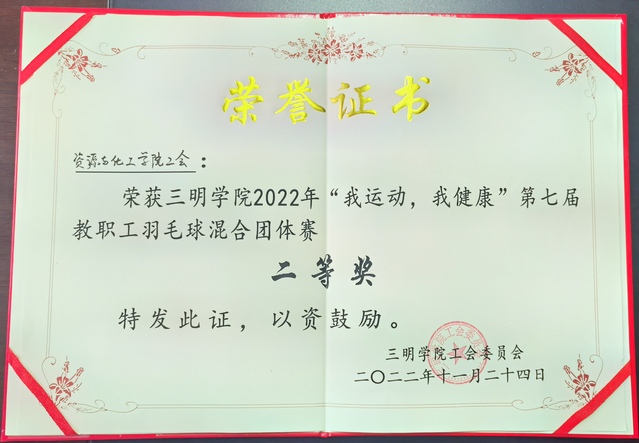 荣誉证书
资源与化工学院工会：
荣获三明学院2022年“我运动，我健康”第七届
教职工羽毛球混合团体赛
二等奖
特发此证，以资鼓励。
三明学院工会委员会
二〇二二年十一月二十四日